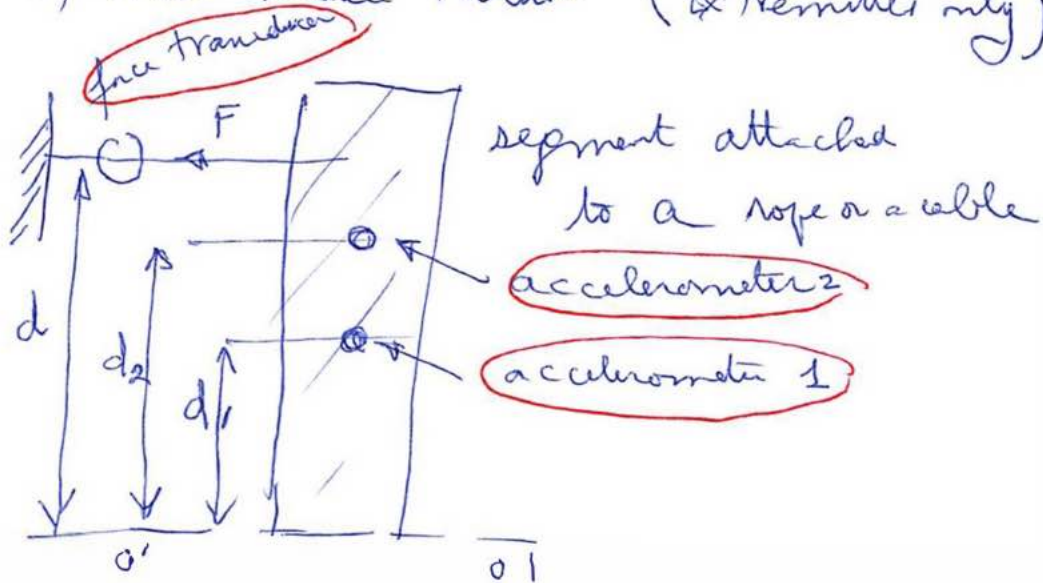 (Extremities only)
force transducer
F
segment attached
to a rope or a cable
accelerometer 2
accelerometer 1
d
d2
d1
o'
o1